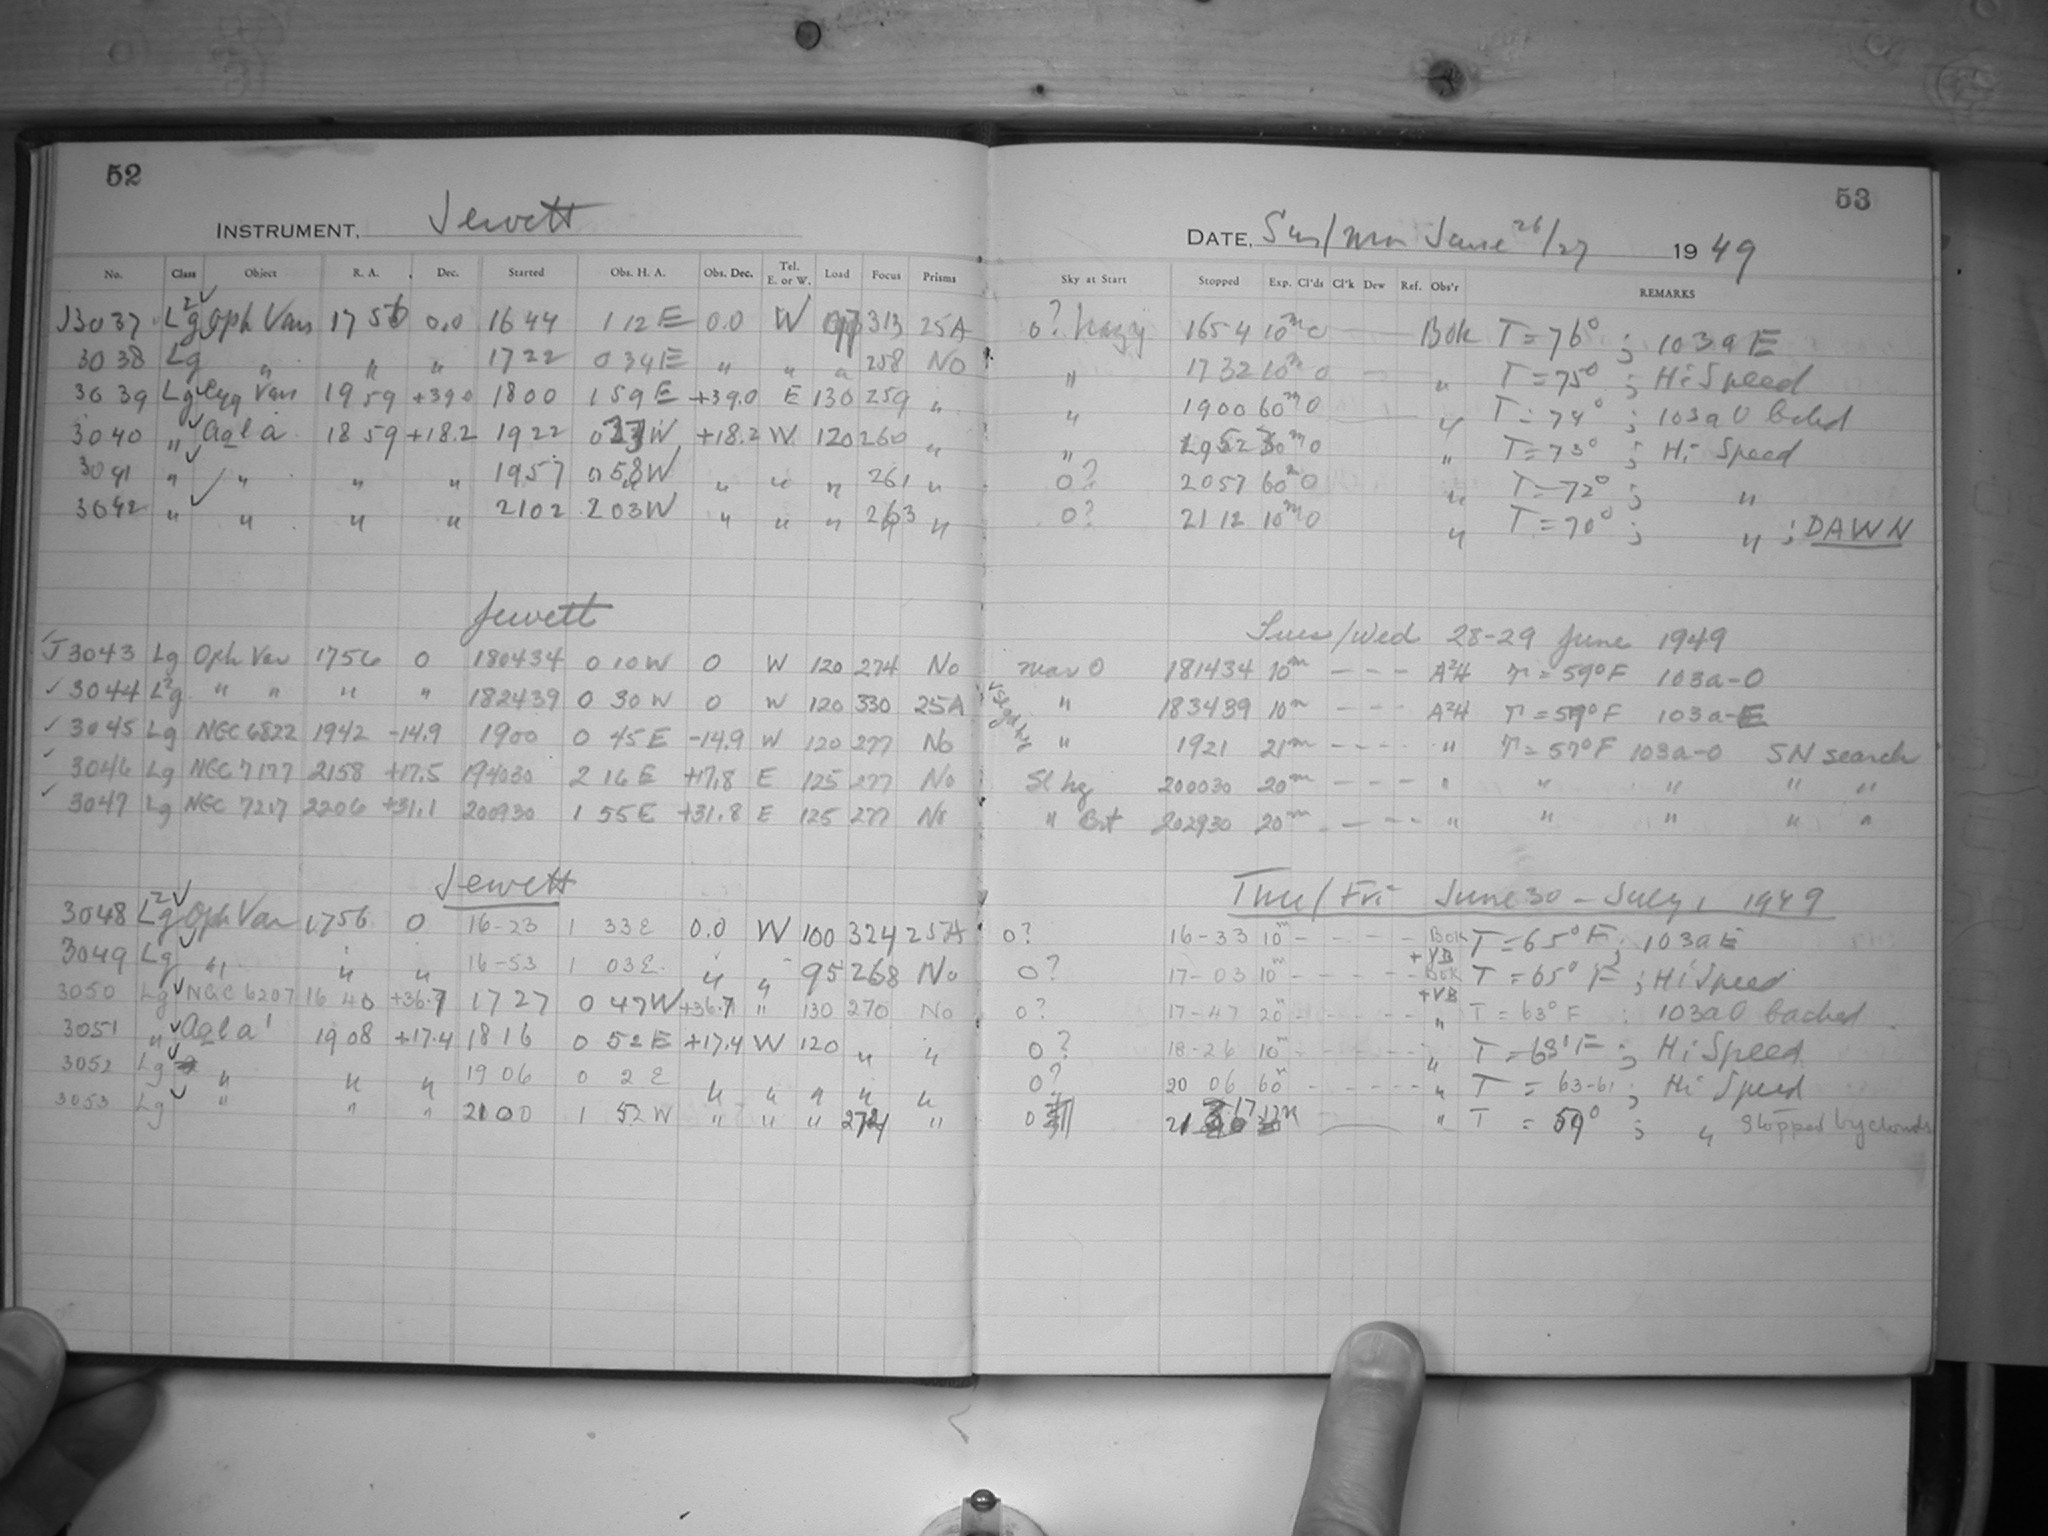 52
53
INSTRUMENT, Jewett
DATE, Sun/Mon June 26/27 1949
No. Class Object R. A. Dec. Started Obs. H. A. Obs. Dec. Tel. E. or W. Load Focus Prisms Sky at Start Stopped Exp. Cl'ds Cl'k Dew Ref. Obs'r REMARKS
J3037 L²g Oph Vars 1756 0.0 1644 1 12E 0.0 W 313 25A 0? hazy 1654 10m 0 Bok T=76° ; 103aE
3038 Lg " " " 1722 0 34E " " " 258 NO " 1732 10m 0 — " T=75° ; Hi Speed
3039 Lg Cyg Vars 19 59 +39.0 1800 1 59 E +39.0 E 130 259 " " 1900 60m 0 " T=74° ; 103aO backed
3040 " Aql a 18 59 +18.2 1922 W +18.2 W 120 260 " " 1952 30m 0 " T=73° ; Hi Speed
3041 " " " " 1957 0 58W " " " 261 " 0? 2057 60m 0 " T=72° ; "
3042 " " " " 2102 2 03W " " " 263 " 0? 21 12 10m 0 " T=70° ; " ; DAWN
Jewett Tues/Wed 28-29 June 1949
J3043 Lg Oph Var 1756 0 180434 0 10W 0 W 120 274 No 0 181434 10m - - - A²H T=59°F 103a-O
3044 L²g " " " " 182439 0 30W 0 W 120 330 25A " 183439 10m - - - A²H T=59°F 103a-E
3045 Lg NGC 6822 1942 -14.9 1900 0 45E -14.9 W 120 277 No " 1921 21m - - - - " T=57°F 103a-O SN search
3046 Lg NGC 7177 2158 +17.5 194030 2 16E +17.8 E 125 277 No Sl hzy 200030 20m - - - " " " " "
3047 Lg NGC 7217 2206 +31.1 200930 1 55E +31.8 E 125 277 No " 202930 20m - - - - " " " " "
Jewett Thu/Fri June 30 - July 1 1949
3048 L²g Oph Var 1756 0 16-23 1 33E 0.0 W 100 324 25A 0? 16-33 10m - - - - Bok + VB T=65°F; 103aE
3049 Lg " " " 16-53 1 03E " " 95 268 No 0? 17-03 10m - - - - Bok +VB T=65°F ; Hi Speed
3050 Lg NGC 6207 16 40 +36.7 1727 0 47W +36.7 " 130 270 No 0? 17-47 20m - - - - " T=63°F ; 103aO backed
3051 " Aql a' 1908 +17.4 1816 0 52E +17.4 W 120 " " 0? 18-26 10m - - - - " T=63°F ; Hi Speed
3052 Lg " " " 1906 0 2E " " " " " 0? 20 06 60m - - - - " T = 63-61 ; Hi Speed
3053 Lg " " " 2100 1 52W " " " " 0 21 17 " T = 59° ; " Stopped by clouds